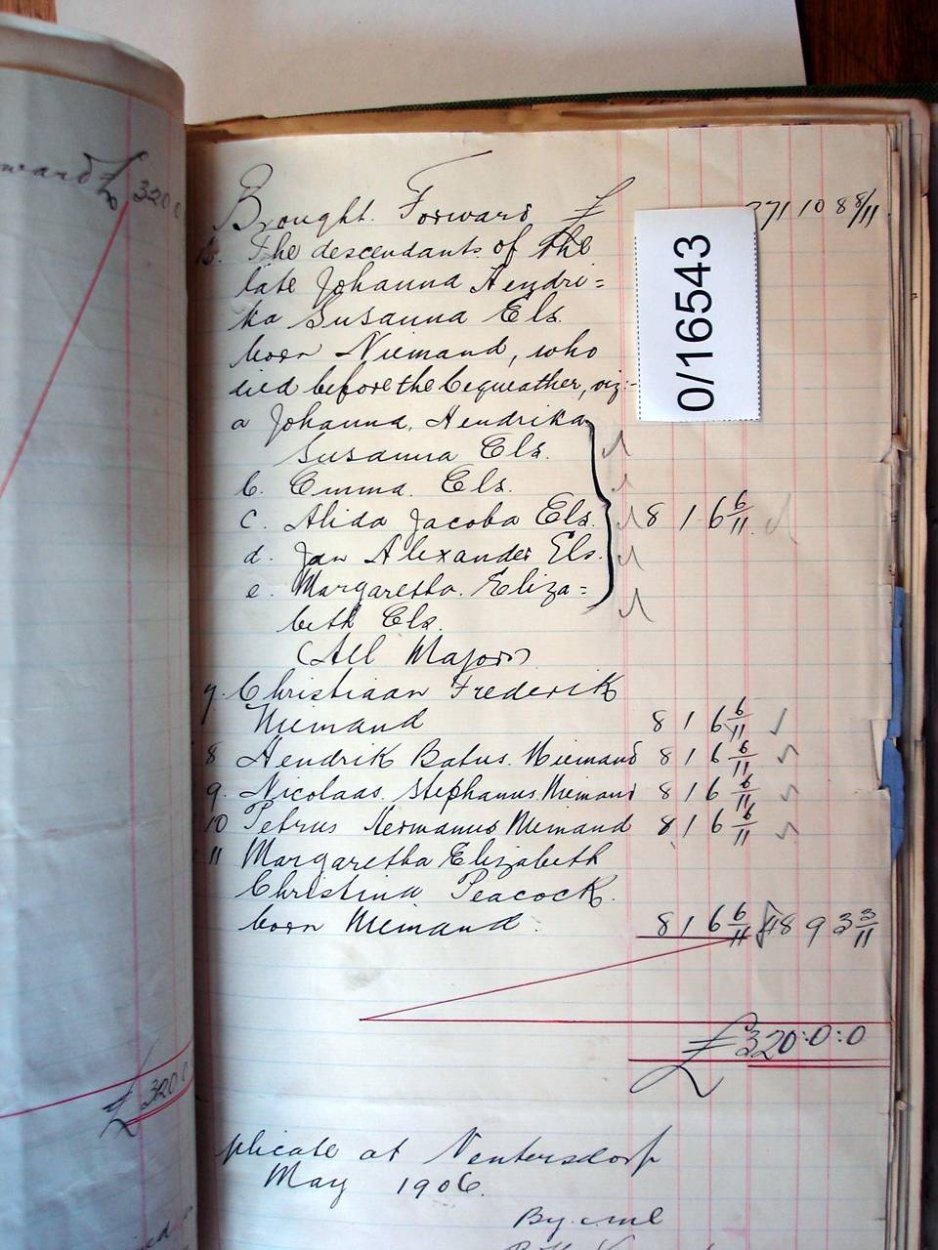 320
Brought Forward £ 271 10 8 8/11
6. The descendants of the
late Johanna Hendri=
ka Susanna Els
born Niemand, who
died before the bequeather, viz:-
a Johanna Hendrika
Susanna Els.
b. Emma Els.
c. Alida Jacoba Els. 8 1 6 6/11
d. Jan Alexander Els.
e. Margaretha Eliza=
beth Els.
(All Majors)
7. Christiaan Frederik
Niemand 8 1 6 6/11
8 Hendrik Batus Niemand 8 1 6 6/11
9. Nicolaas Stephanus Niemand 8 1 6 6/11
10 Petrus Hermanus Niemand 8 1 6 6/11
11 Margaretha Elizabeth
Christina Peacock
born Niemand. 8 1 6 6/11 48 9 3 3/11
£ 320:0:0
£ 320 0
plicate at Ventersdorp
May 1906.
By me
0/16543